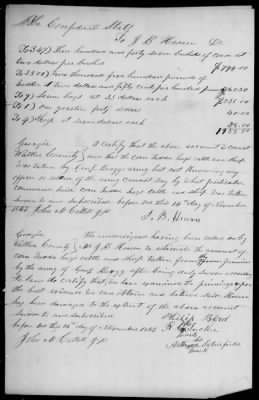 The Confederate States
To J B Hearn Dr
To 347) Three hundred and forty seven bushels of corn at
two dollars per bushel $694.00
To 2500) two thousand five hundred pounds of
fodder at two dollars and fifty cents per hundred pounds $62.50
dollars each
To 1) One yearling forty dollars 40.00
To 4) Sheep at seven dollars each
Georgia I certify that the above account is correct
Walker County and that the corn fodder hogs cattle and sheep
was taken by Genl Braggs army but not knowing any
officer or soldier of the army cannot say by what particular
command which corn fodder hogs cattle and sheep was taken
sworn to and subscribed before me this 14 day of November
1863 John M Catlett J P
J. B. Hearn
Georgia The undersigned having been called on by
Walker County Mr J B Hearn to estimate the amount of
corn fodder hogs cattle and sheep taken from his farm premises
by the army of Genl Bragg after being duly sworn according
to law do certify that we have examined the premises upon
the best evidence we can obtain and believe said Hearn
has been damaged to the extent of the above account
sworn to and subscribed
before me this 14 day of November 1863
John M Catlett J P
Philip Bird
his
mark
his
mark